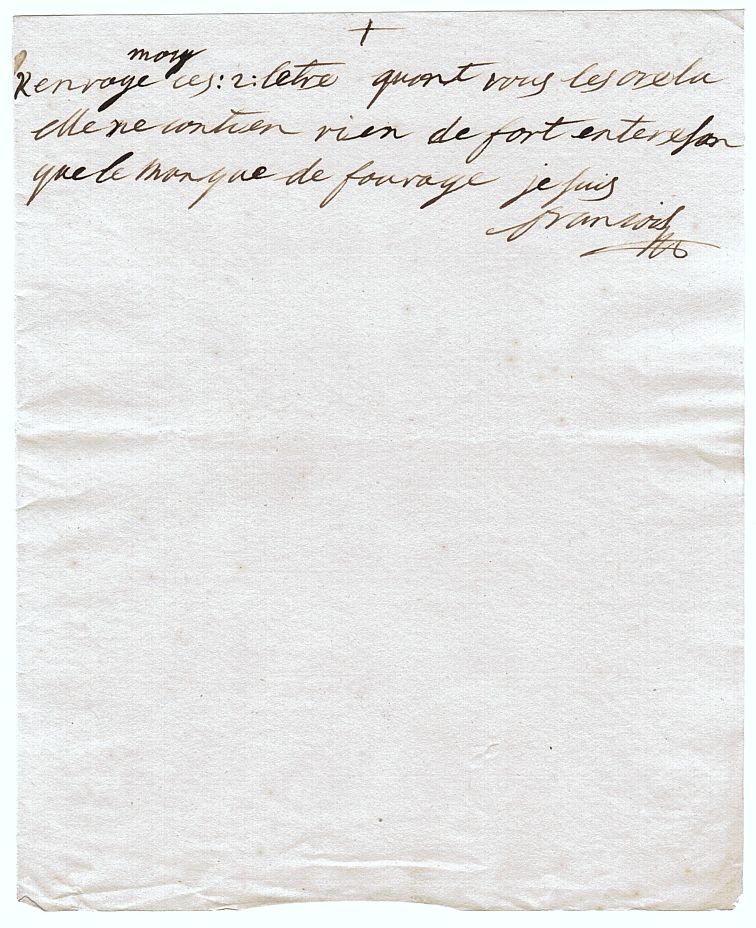 +
moy
Renvoye ces : 2 : letre quant vous les orelu
elle ne contien rien de fort enteresan
que le monque de fourage je suis
francois